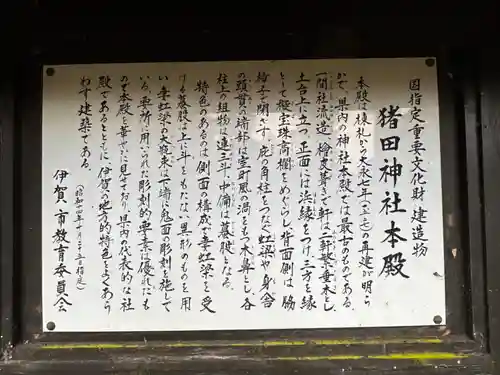 国指定重要文化財 建造物
猪田神社本殿
本殿は棟札から大永七年(一五二七)の再建が明ら
かで、県内の神社本殿では最古のものである。
一間社流造、檜皮葺きで軒は一軒繁垂木とし
土台上に立つ。正面には浜縁をつけ三方を縁
として擬宝珠高欄をめぐらし、背面側は脇
障子で閉ざす。庇の角柱をつなぐ虹梁や身舎
の頭貫の端部は室町風の渦をもつ木鼻とし、各
柱上の組物は連三斗、中備は蟇股となる。
特色のあるのは側面の構成で、妻虹梁を受
ける蟇股は大斗をもたない異形のものを用
い、妻虹梁の大瓶束は下端に鬼面の彫刻を施して
いる。要所に用いられた彫刻的要素は優れたも
ので本殿を華やかに見せており、県内の代表的な社
殿であるとともに、伊賀の地方的特色をよくあら
わす建築である。
(昭和四年十月二十五日指定)
伊賀市教育委員会